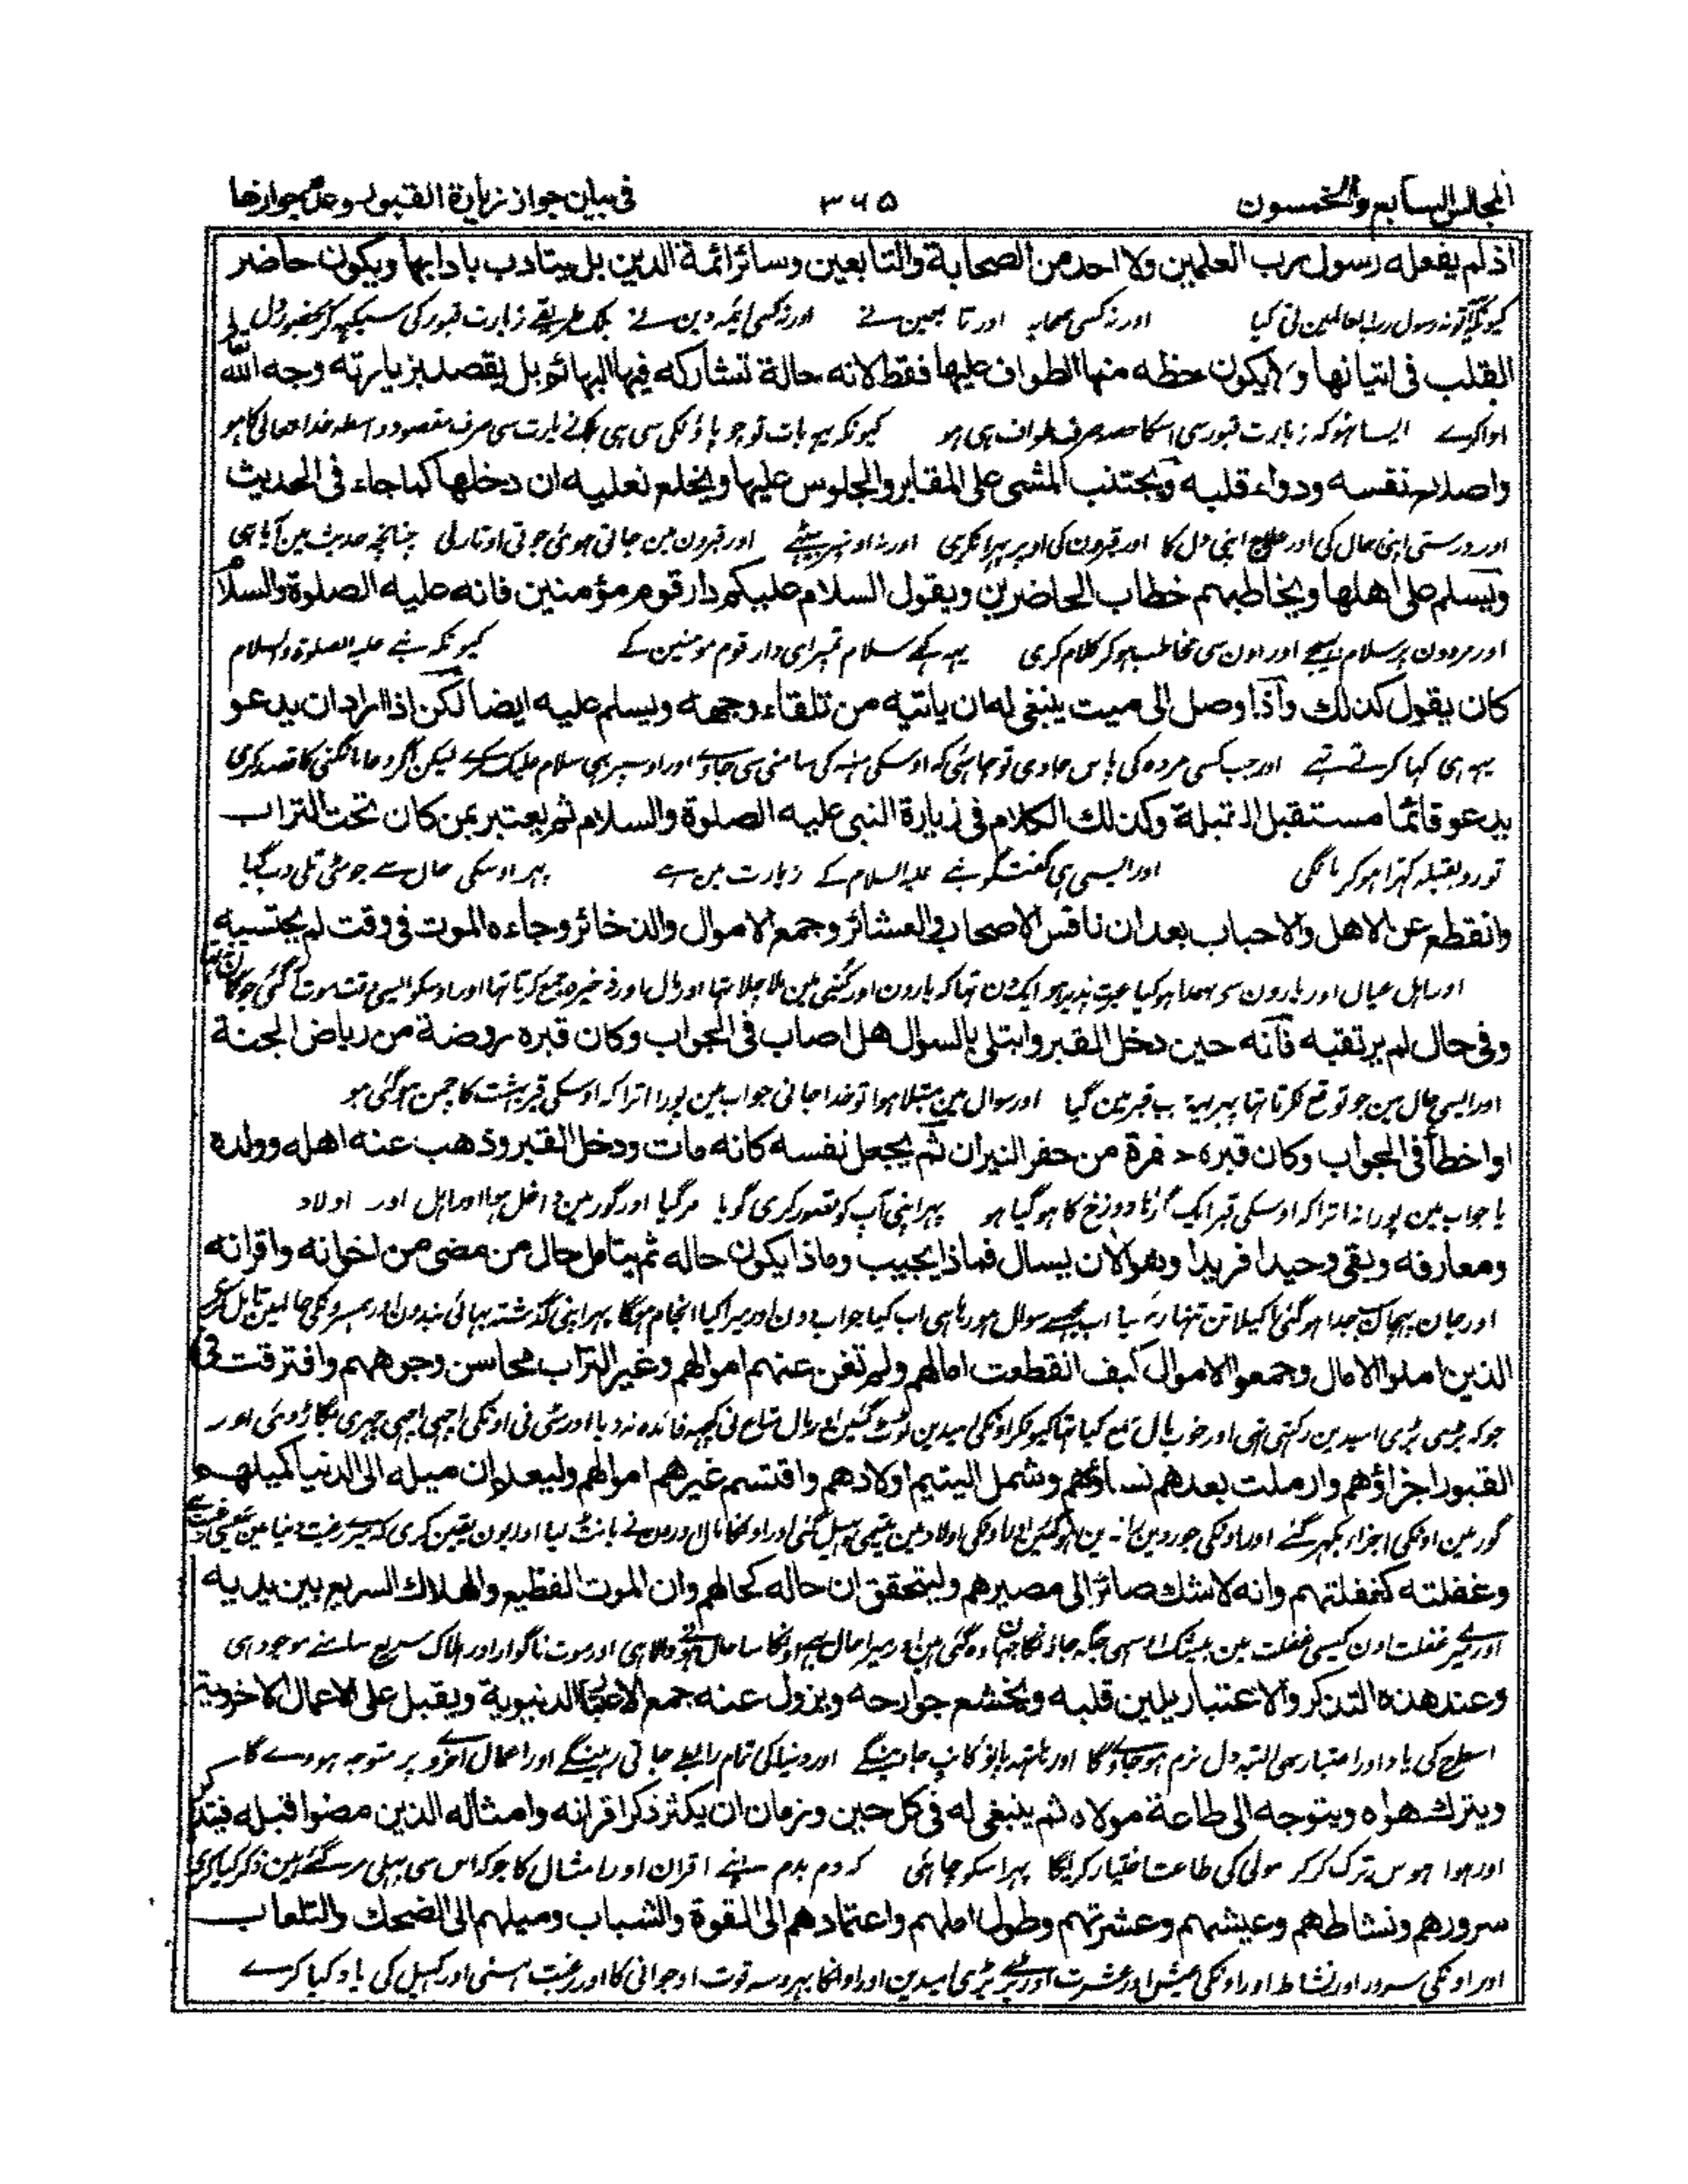 المجلس السابع والخمسون ٣٦٥ فى بيان جواز زيارة القبور وعدم جوازها
اذ لم يفعله رسول رب العلمين ولا احد من الصحابة والتابعين وسائر ائمة الدين بل يتادب بادابها ويكون حاضر
کیونکہ نہ رسول رب العالمین نی کیا اور نہ کسی صحابہ اور تا بعین نے اور نہ کسی ائمہ دین نے بلکہ طریقے زیارت قبور کی سیکہہ کر بحضور دل
القلب فى اتيانها ولا يكون حظه منها الطواف عليها فقط لانه حالة تشاركه فيها البهائم بل يقصد بزيارته وجه الله
ادا کرے ایسا نہو کہ زیارت قبور سی اسکا حصہ صرف طواف ہی ہو کیونکہ یہہ بات تو چوپاؤنکی سی ہی بلکہ زیارت سی صرف مقصود واسطہ خدا تعالی کا ہو
واصلاح نفسه ودواء قلبه ويجتنب المشى على المقابر والجلوس عليها ويخلع نعليه ان دخلها كما جاء فى الحديث
اور درستی اپنی حال کی اور علاج اپنی دل کا اور قبرون کی اوپر پہرا نکری اور نہ اونپر بیٹھے اور قبرون مین جاتی ہوئی جوتی اوتار لی چنانچہ حدیث مین آیا ہی
ويسلم على اهلها ويخاطبهم خطاب الحاضرين ويقول السلام عليكم دار قوم مؤمنين فانه عليه الصلوة والسلام
اور مردون پر سلام بہیجے اور اون سی مخاطب ہو کر کلام کری یہہ کہے سلام تمپر ای دار قوم مومنین کے کیونکہ نبے علیہ الصلوة والسلام
كان يقول كذلك واذا وصل الى ميت ينبغى له ان ياتيه من تلقاء وجهه ويسلم عليه ايضا لكن اذا اراد ان يدعو
یہہ ہی کہا کرتے تہے اور جب کسی مردہ کی پاس جاوی تو چاہئی کہ اوسکی منہہ کی سامنی سی جاوے اور اوسپر بہی سلام علیک کرے لیکن اگر دعا مانگنی کا قصد کری
يدعو قائما مستقبل القبلة وكذلك الكلام فى زيارة النبى عليه الصلوة والسلام ثم يعتبر بمن كان تحت التراب
تو رو بقبلہ کہڑا ہو کر مانگی اور ایسی ہی گفتگو نبے علیہ السلام کے زیارت مین ہے پہر اوسکی حال سے جو مٹی تلی دب گیا
وانقطع عن الاهل والاحباب بعد ان نافس الاصحاب والعشائر وجمع الاموال والذخائر وجاءه الموت فى وقت لم يحتسبه
اور اہل عیال اور یارون سی جدا ہو گیا عبرت پذیر ہو ایک دن تہا کہ یارون اور کنبی مین ملا جلا تہا اور مال اور ذخیرہ جمع کرتا تہا اور اوسکو ایسی وقت موت آگئی
وفى حال لم يرتقبه فانه حين دخل القبر وابتلى بالسوال هل اصاب فى الجواب وكان قبره روضة من رياض الجنة
اور ایسی حال مین جو توقع نکرتا تہا پہر یہہ جب قبر مین گیا اور سوال مین مبتلا ہوا تو خدا جانی جواب مین پورا اترا کہ اوسکی قبر بہشت کا چمن ہو گئی ہو
او اخطأ فى الجواب وكان قبره حفرة من حفر النيران ثم يجعل نفسه كانه مات ودخل القبر وذهب عنه اهله وولده
یا جواب مین پورا نہ اترا کہ اوسکی قبر ایک گڑہا دوزخ کا ہو گیا ہو پہر اپنی آپ کو تصور کری گویا مرگیا اور گور مین داخل ہوا اور اہل اور اولاد
ومعارفه وبقى وحيدا فريدا وهو الان يسال فماذا يجيب وماذا يكون حاله ثم يتامل حال من مضى من اخوانه واقرانه
اور جان پہچان جدا ہو گئی اکیلا تن تنہا رہ گیا اب مجھسے سوال ہو رہا ہی اب کیا جواب دون اور میرا کیا انجام ہوگا پہر اپنی گذشتہ بہائی بندون اور ہمسرونکی حال مین تامل کری
الذين املوا الامال وجمعوا الاموال كيف انقطعت امالهم ولم تغن عنهم اموالهم وغير التراب محاسن وجوههم وافترقت فى
جو کہ بڑی بڑی امیدین رکہتی تہی اور خوب مال جمع کیا تہا کیونکر اونکی امیدین ٹوٹ گئین اور مال متاع نی کچہہ فائدہ نہ دیا اور مٹی نی اونکی اچہی اچہی چہری بگاڑ دئی اور
القبور اجزاؤهم وارملت بعدهم نساؤهم وشمل اليتيم اولادهم واقتسم غيرهم اموالهم وليعلم ان ميله الى الدنيا كميلهم
گور مین اونکی اجزاء بکہر گئے اور اونکی جوروین رانڈین ہو گئین اور اونکی اولاد مین یتیمی پہیل گئی اور اونکا مال اورون نے بانٹ لیا اور یون یقین کری کہ میرے رغبت دنیا مین
وغفلته كغفلتهم وانه لا شك صائر الى مصيرهم وليتحقق ان حاله كحالهم وان الموت الفظيع والهلاك السريع بين يديه
اور میرے غفلت اون کیسی غفلت مین بیشک اسہی جگہ جاؤنگا جہان وہ گئی ہین اور میرا حال بہی اونکا سا حال ہونے والا ہی اور موت ناگوار اور ہلاک سریع سامنے موجود ہی
وعند هذه التذكر والاعتبار يلين قلبه ويخشع جوارحه ويزول عنه جميع الدنيوية ويقبل على الاعمال الاخروية
اسطرح کی یاد اور اعتبار سی البتہ دل نرم ہو جاوے گا اور ہاتہہ پاؤ کانپ جاوینگے اور دنیا کی تمام رابطے جاتی رہینگے اور اعمال اخروے پر متوجہ ہووے گا
ويترك هواه ويتوجه الى طاعة مولاه ثم ينبغى له فى كل حين وزمان ان يكثر ذكر اقرانه وامثاله الذين مضوا قبله فيتذكر
اور ہوا ہوس ترک کر کر مولی کی طاعت اختیار کریگا پہر اسکو چاہئی کہ دم بدم اپنے اقران اور امثال کا جو کہ اس سی پہلی مر گئے ہین ذکر کیا کری
سرورهم ونشاطهم وعيشهم وعشرتهم وطول املهم واعتمادهم الى القوة والشباب وميلهم الى الضحك والتلعاب
اور اونکی سرور اور نشاط اور اونکی عیش اور عشرت اور بڑے بڑی امیدین اور اونکا بہروسہ قوت اور جوانی کا اور رغبت ہسنی اور کہیل کی یاد کیا کرے